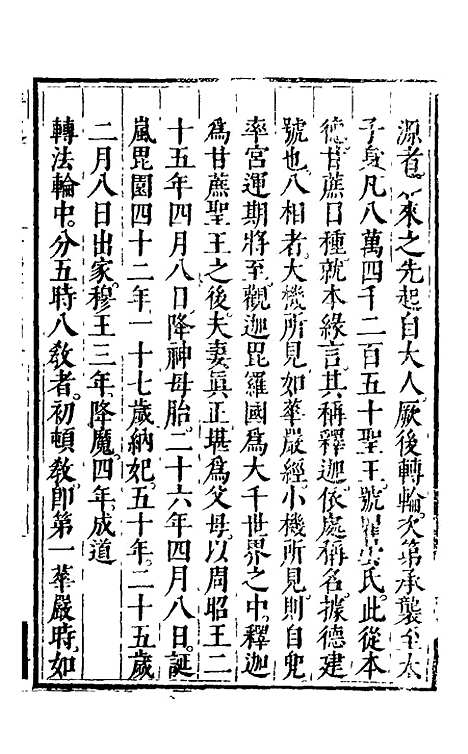 源者。從來之先起自大人。厥後轉輪。次第承襲至太
子身。凡八萬四千二百五十聖王。號瞿曇氏。此從本
德甘蔗曰種。就本緣言。其稱釋迦。依處稱名。據德建
號也。八相者。大機所見如華嚴經。小機所見。則自兜
率宮運期將至。觀迦毘羅國為大千世界之中。釋迦
為甘蔗聖王之後。夫妻眞正堪為父母。以周昭王二
十五年四月八日降神母胎。二十六年四月八日。誕
嵐毘園。四十二年一十七歲納妃。五十年。二十五歲
二月八日出家。穆王三年。降魔。四年。成道
轉法輪中。分五時八教者。初頓教。即第一華嚴時。如